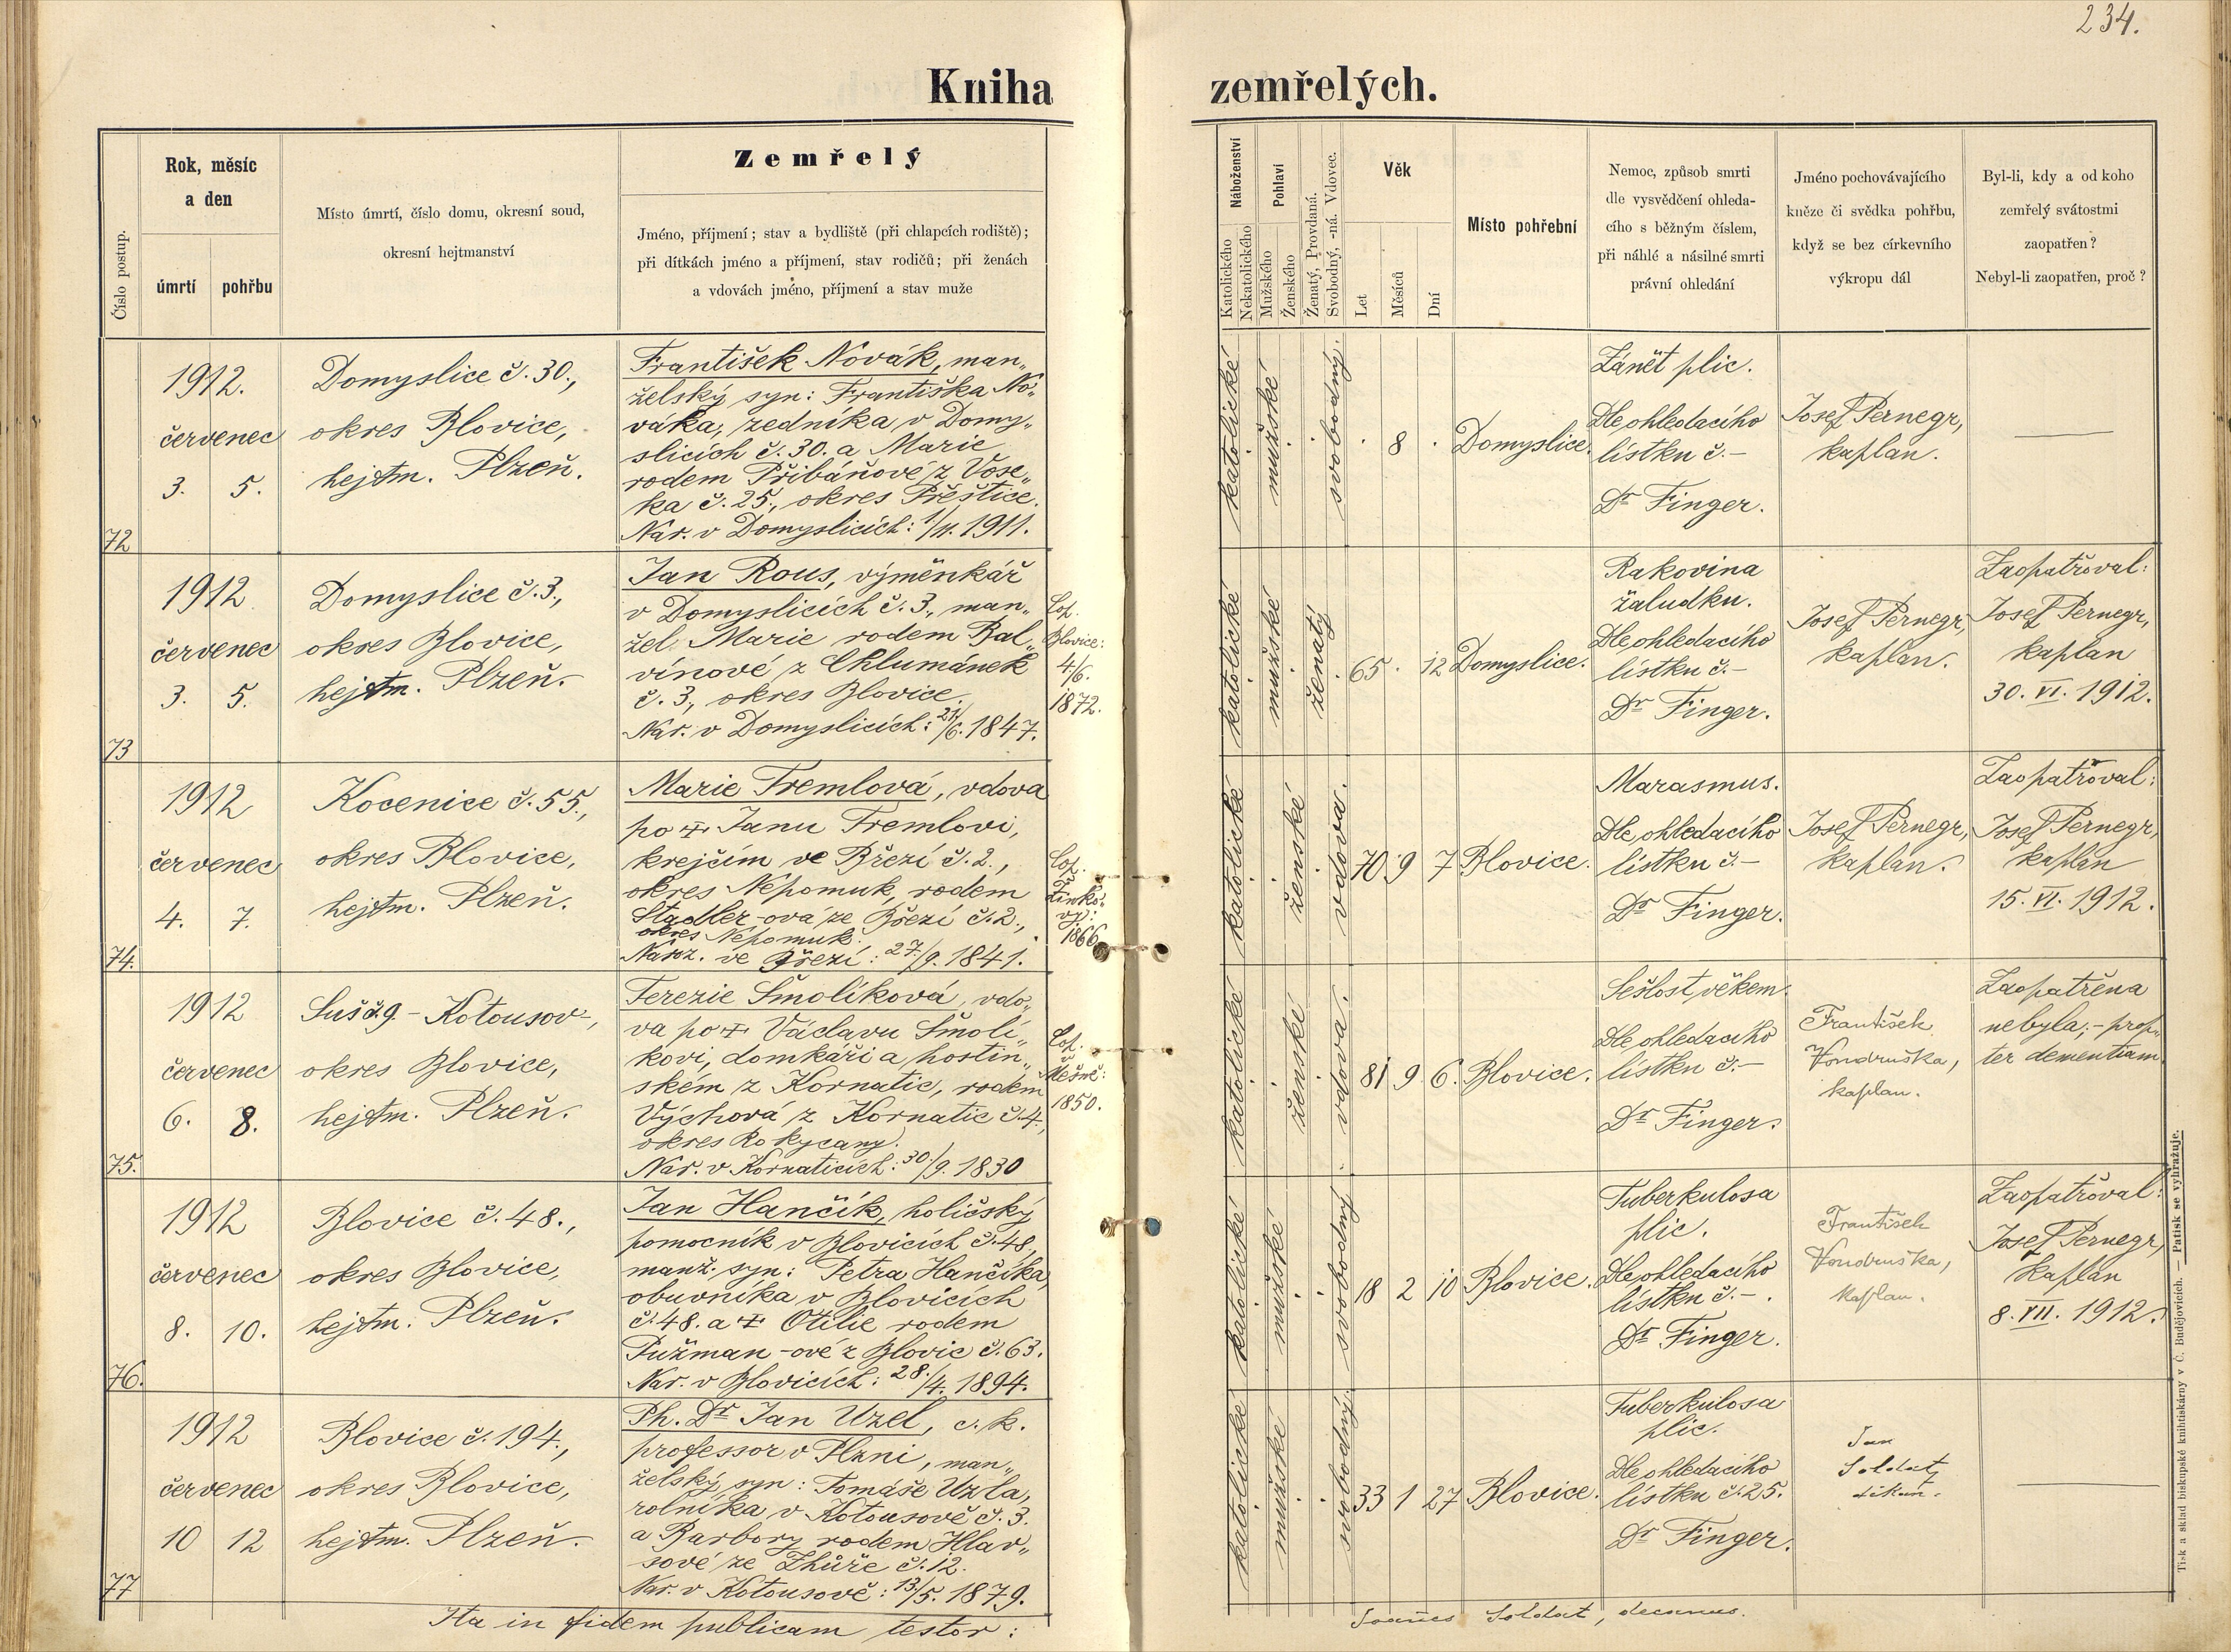 234.
Kniha zemřelých.
Číslo postup.
Rok, měsíc
a den
úmrtí
pohřbu
Místo úmrtí, číslo domu, okresní soud,
okresní hejtmanství
Zemřelý
Jméno, příjmení; stav a bydliště (při chlapcích rodiště);
při dítkách jméno a příjmení, stav rodičů; při ženách
a vdovách jméno, příjmení a stav muže
Náboženství
Katolického
Nekatolického
Pohlaví
Mužského
Ženského
Ženatý, Provdaná.
Svobodný, -ná. Vdovec.
Věk
Let
Měsíců
Dní
Místo pohřební
Nemoc, způsob smrti
dle vysvědčení ohleda-
cího s běžným číslem,
při náhlé a násilné smrti
právní ohledání
Jméno pochovávajícího
kněze či svědka pohřbu,
když se bez církevního
výkropu dál
Byl-li, kdy a od koho
zemřelý svátostmi
zaopatřen?
Nebyl-li zaopatřen, proč?
72
1912.
červenec
3. 5.
Domyslice č. 30.,
okres Blovice,
hejtm. Plzeň.
František Novák, man„
želský syn: Františka No„
váka, zedníka, v Domy„
slicích č. 30. a Marie
rodem Přibáňové z Vose„
ka č. 25., okres Přeštice.
Nar. v Domyslicích: 1/11. 1911.
katolické
mužské
svobodný.
8
Domyslice.
Zánět plic.
Dle ohledacího
lístku č. –
Dr Finger.
Josef Pernegr,
kaplan.
73
1912
červenec
3. 5.
Domyslice č. 3.,
okres Blovice,
hejtm. Plzeň.
Jan Rous, výměnkář
v Domyslicích č. 3., man„
žel Marie rodem Bal„
vínové z Chlumánek
č. 3., okres Blovice.
Nar. v Domyslicích: 21/6. 1847.
Cop.
Blovice:
4/6.
1872.
katolické
mužské
ženatý
65 . 12
Domyslice.
Rakovina
žaludku.
Dle ohledacího
lístku č. –
Dr Finger.
Josef Pernegr,
kaplan.
Zaopatřoval:
Josef Pernegr,
kaplan
30. VI. 1912.
74.
1912
červenec
4. 7.
Kocenice č. 55.,
okres Blovice,
hejtm. Plzeň.
Marie Tremlová, vdova
po ✝ Janu Tremlovi,
krejčím ve Březí č. 2.,
okres Nepomuk, rodem
Stadler-ová ze Březí č. 2.,
okres Nepomuk.
Naroz. ve Březí: 27/9. 1841.
Cop.
Žinko„
vy:
1866
katolické
ženské
vdova.
70 9 7
Blovice.
Marasmus.
Dle ohledacího
lístku č. –
Dr Finger.
Josef Pernegr,
kaplan.
Zaopatřoval:
Josef Pernegr,
kaplan
15. VI. 1912.
75.
1912
červenec
6. 8.
Suš č. 9. – Kotousov –,
okres Blovice,
hejtm. Plzeň.
Terezie Šmolíková, vdo„
va po ✝ Václavu Šmolí„
kovi, domkáři a hostin„
ském z Kornatic, rodem
Výchová z Kornatic č. 4.,
okres Rokycany.
Nar. v Kornaticích: 30/9. 1830
Cop.
Mešně:
1850.
katolické
ženské
vdova.
81 9 6.
Blovice.
Sešlost věkem.
Dle ohledacího
lístku č. –
Dr Finger.
František
Vondruška,
kaplan.
Zaopatřena
nebyla; – prop„
ter dementiam
76.
1912
červenec
8. 10.
Blovice č. 48.,
okres Blovice,
hejtm. Plzeň.
Jan Hančík, holičský
pomocník v Blovicích č. 48,
manž. syn: Petra Hančíka,
obuvníka v Blovicích
č. 48. a ✝ Otilie rodem
Pužman-ové z Blovic č. 63.
Nar. v Blovicích: 28./4. 1894.
katolické
mužské
svobodný
18 2 10
Blovice.
Tuberkulosa
plic.
Dle ohledacího
lístku č. – .
Dr Finger.
František
Vondruška,
kaplan.
Zaopatřoval:
Josef Pernegr,
kaplan
8. VII. 1912.
77
1912
červenec
10 12
Blovice č. 194.,
okres Blovice,
hejtm. Plzeň.
Ph. Dr Jan Uzel, c. k.
professor v Plzni, man„
želský syn: Tomáše Uzla,
rolníka v Kotousově č. 3.
a Barbory rodem Hlav„
sové ze Zhůře č. 12.
Nar. v Kotousově: 13/5. 1879.
katolické
mužské
svobodný.
33 1 27
Blovice.
Tuberkulosa
plic.
Dle ohledacího
lístku č. 25.
Dr Finger.
Jan
Soldát,
děkan.
Ita in fidem publicam testor:
Joannes Soldát, decanus.
Tisk a sklad biskupské knihtiskárny v Č. Budějovicích. — Patisk se vyhražuje.